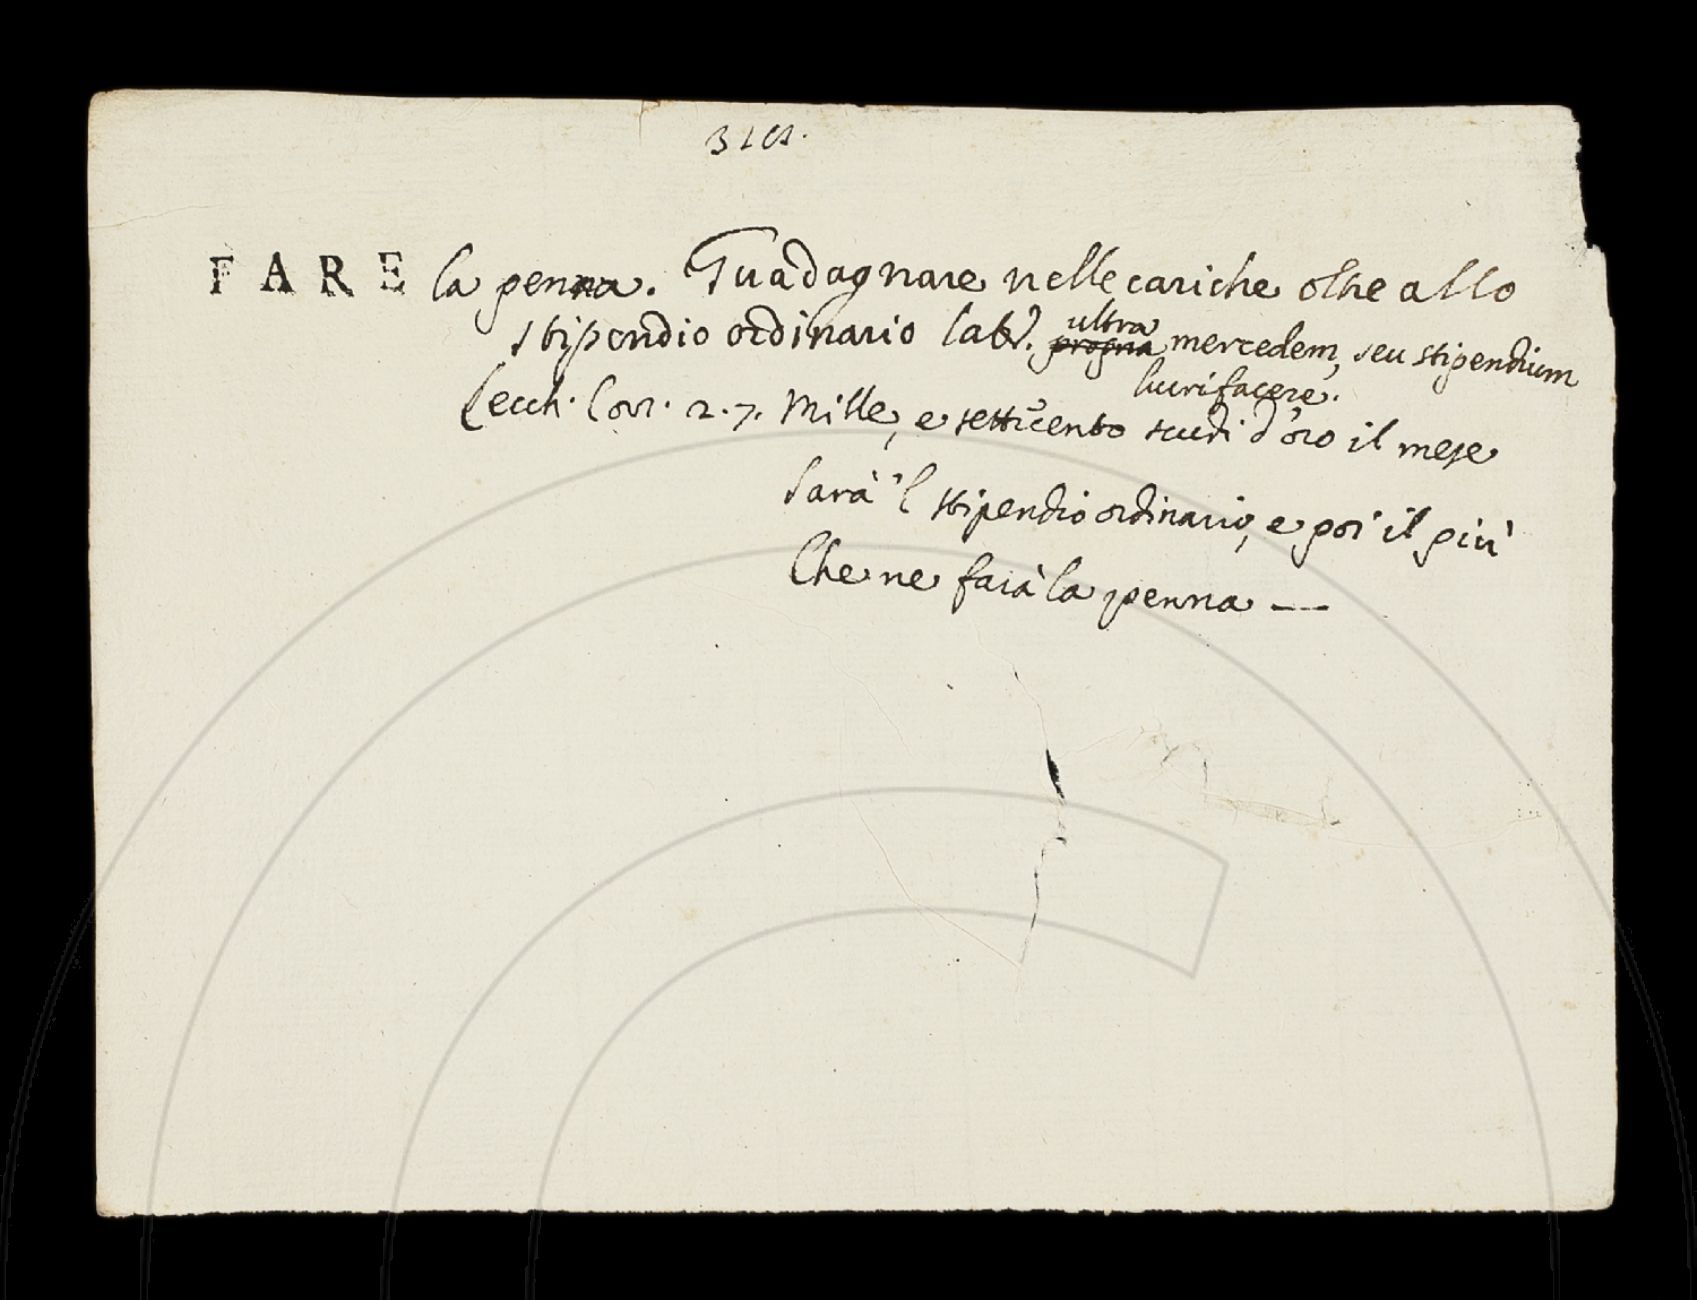 FARE la penna. Guadagnare nelle cariche oltre allo
stipendio ordinario lat. ultra mercedem, seu stipendium
lucrifacere.
Cecch. Corr. 2. 7. Mille, e setticento scudi d'oro il mese
Sarà 'l stipendio ordinario, e poi il più
Che ne farà la penna --